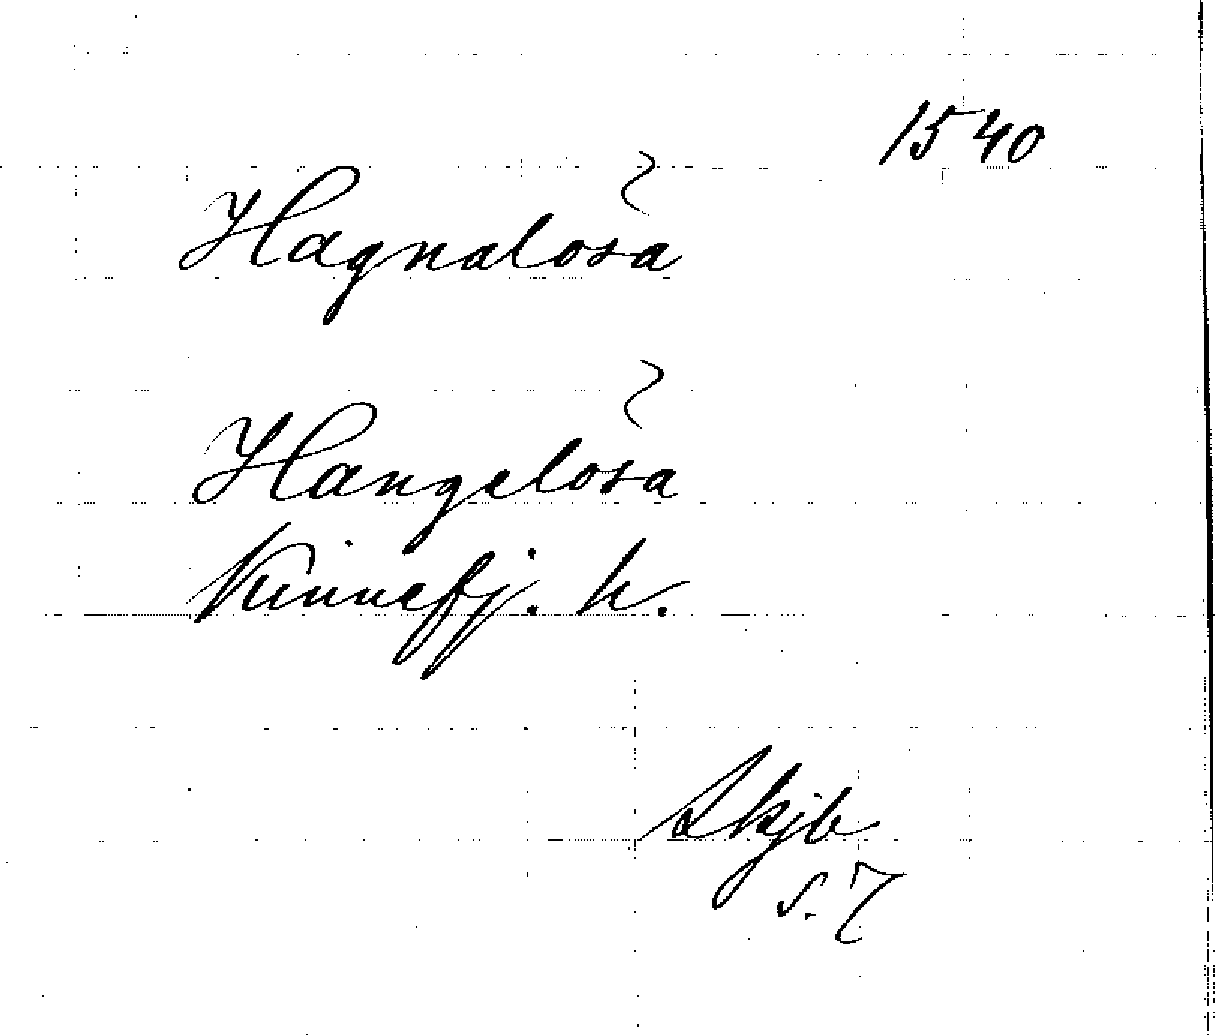 1540
Hagnalösa
Hangelösa
Kinnefj. h.
Skjb
s. 7